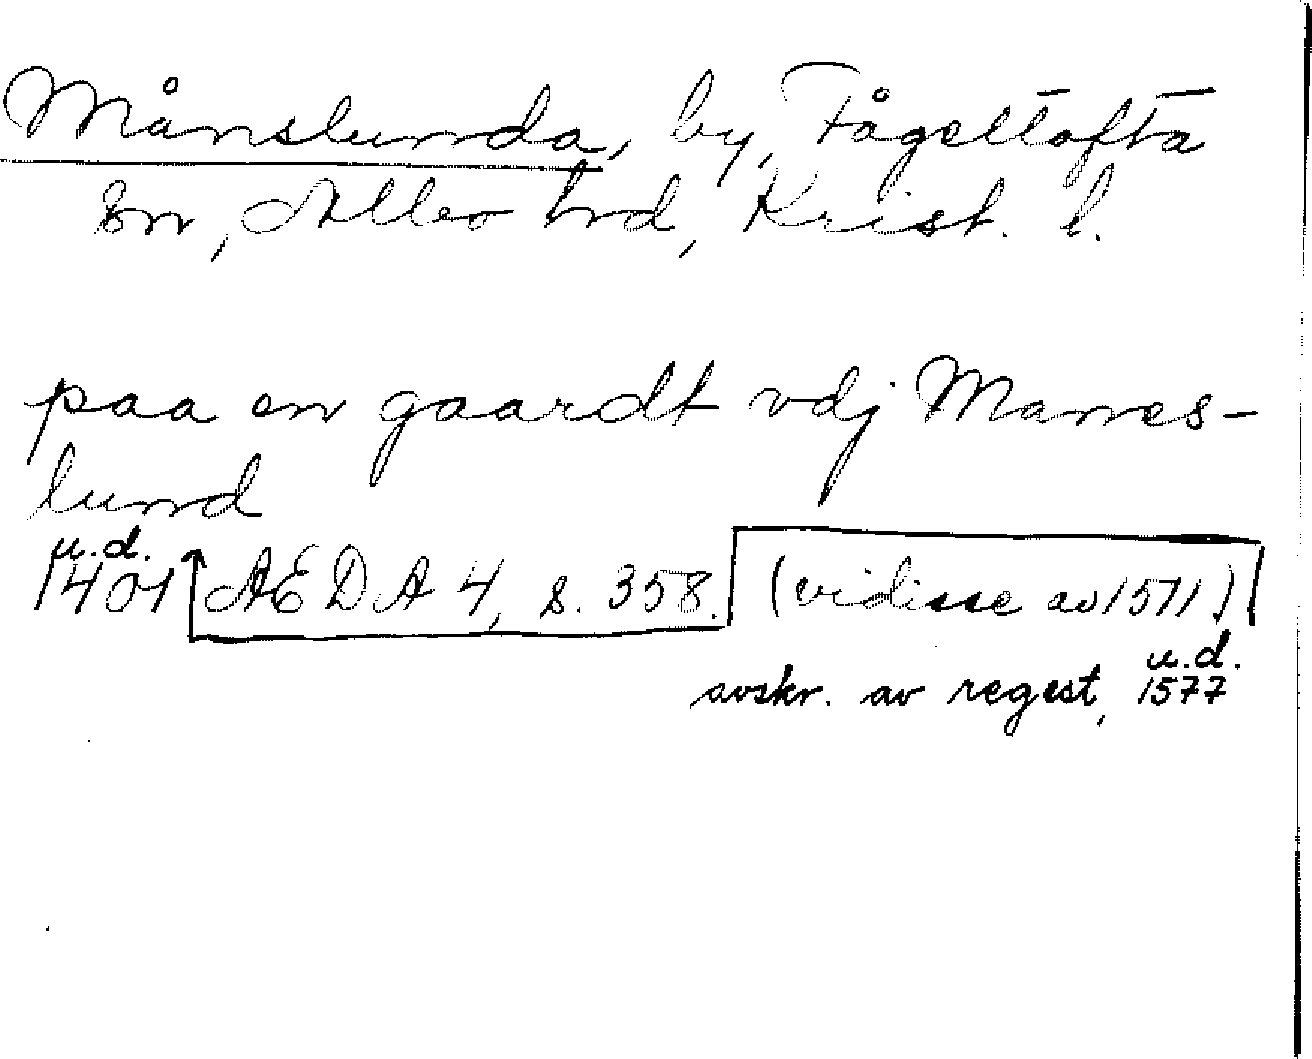 Månslunda, by, Fågeltofta
sn, Albo hrd, Krist. l.
paa en gaardt vdj Manes-
lund
u.d.
1401 AEDA 4, s. 358. (vidisse av 1571)
u.d.
avskr. av regest, 1577